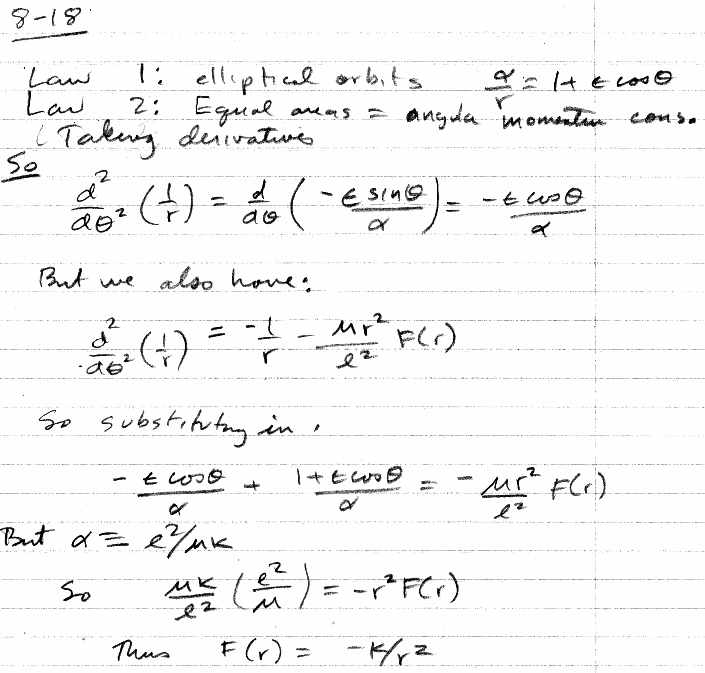 8-18
Law 1: elliptical orbits α/r = 1+ ϵ cosθ
Law 2: Equal areas = angula momentum cons.
(Taking derivatives
So
d²/dθ² (1/r) = d/dθ (-ϵ sinθ/α) = -ϵ cosθ/α
But we also have:
d²/dθ² (1/r) = -1/r - μr²/ℓ² F(r)
So substituting in,
-ϵ cosθ/α + 1+ϵ cosθ/α = - μr²/ℓ² F(r)
But α ≡ ℓ²/μK
So μK/ℓ² (ℓ²/μ) = -r² F(r)
Thus F(r) = -K/r²